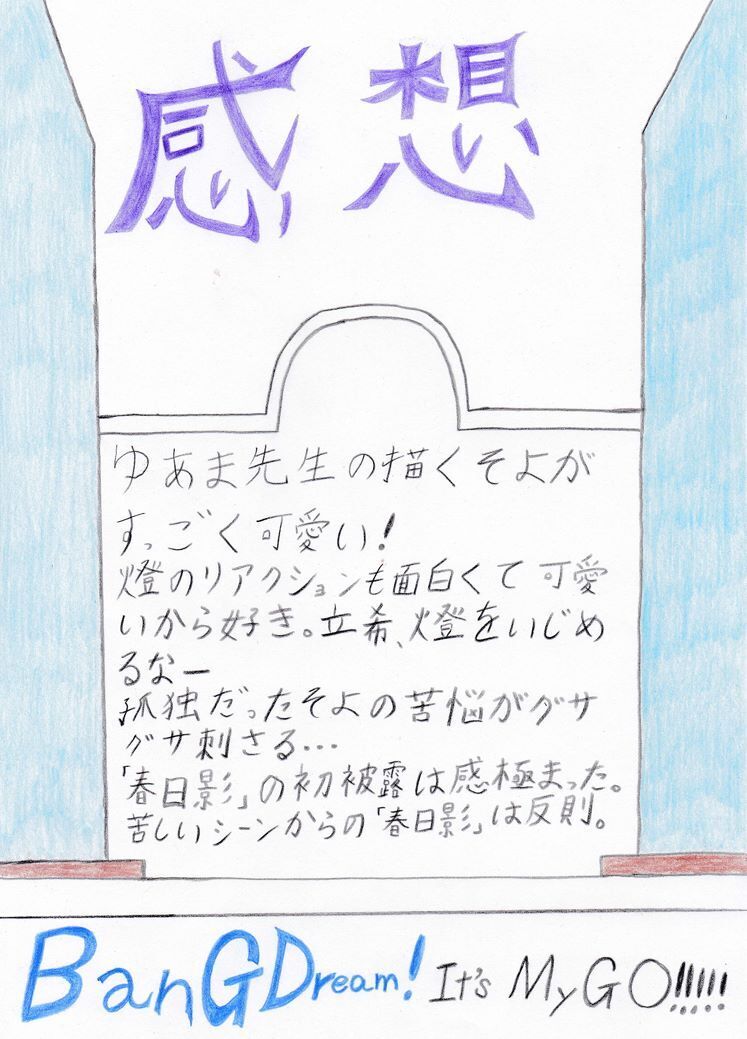 感想
ゆあま先生の描くそよが
すっごく可愛い!
燈のリアクションも面白くて可愛
いから好き。立希、燈をいじめ
るなー
孤独だったそよの苦悩がグサ
グサ刺さる…
「春日影」の初披露は感極まった。
苦しいシーンからの「春日影」は反則。
BanGDream! It's MyGO!!!!!